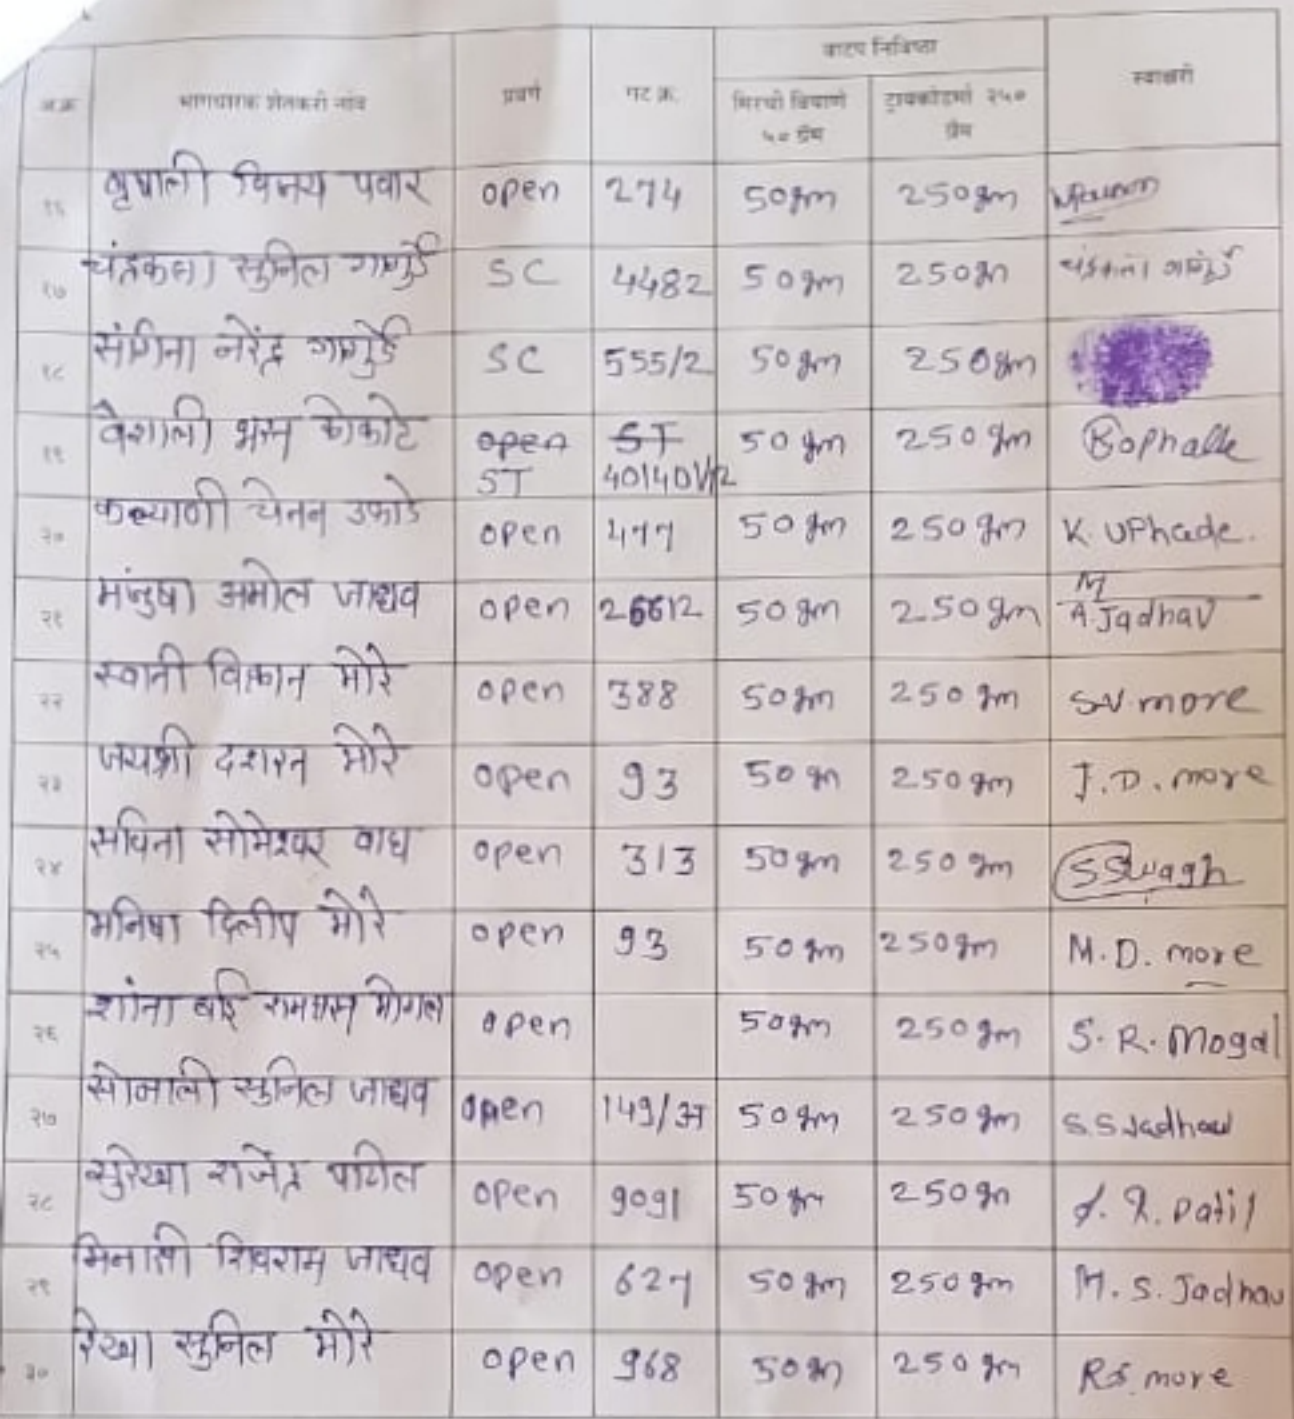 वाटप निविष्ठा
अ.क्र. भागधारक शेतकरी नांव प्रवर्ग गट क्र. मिरची बियाणे ५० ग्रॅम ट्रायकोडर्मा २५० ग्रॅम स्वाक्षरी
१६ वृषाली विजय पवार open 274 50gm 250gm
१७ चंद्रकला सुनिल गांगुर्डे SC 4482 50gm 250gm चंद्रकला गांगुर्डे
१८ संगिता नरेंद्र गांगुर्डे SC 555/2 50gm 250gm
१९ वैशाली open ST 50gm 250gm
ST
२० कल्याणी चेतन उफाडे open 477 50gm 250gm K. UPhade.
२१ मंजुषा अमोल जाधव open 50gm 250gm M A. Jadhav
२२ स्वाती विक्रांत मोरे open 388 50gm 250gm S.V. more
२३ जयश्री दशरत मोरे open 93 50gm 250gm J. D. more
२४ सविता सोमेश्वर वाघ open 313 50gm 250gm SSWagh
२५ मनिषा दिलीप मोरे open 93 50gm 250gm M. D. more
२६ शांता बाई रामदास मोगल open 50gm 250gm S. R. Mogal
२७ सोनाली सुनिल जाधव open 149/अ 50gm 250gm S.S Jadhav
२८ सुरेखा राजेंद्र पाटिल open 9091 50gm 250gm S. R. Patil
२९ मिनाक्षी शिवराम जाधव open 627 50gm 250gm M. S. Jadhav
३० रेखा सुनिल मोरे open 968 50gm 250gm R.S. more